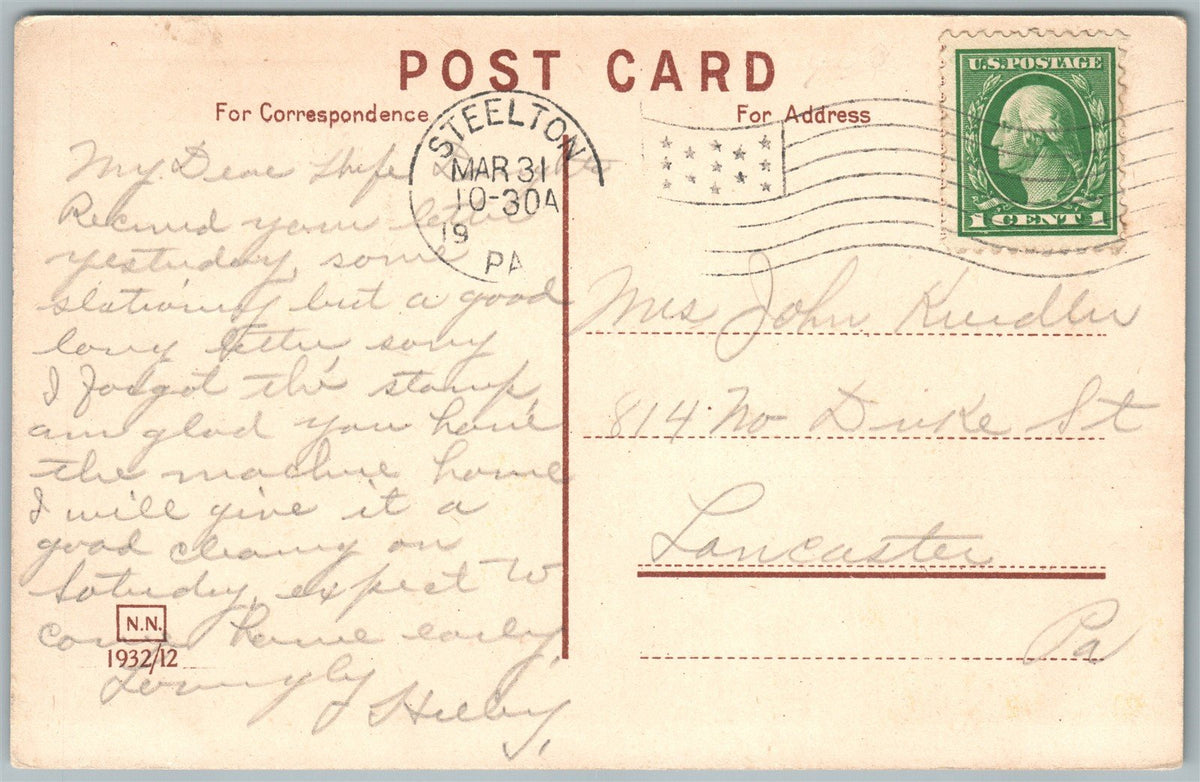 POST CARD
For Correspondence
For Address
U.S. POSTAGE
1 CENT 1
STEELTON
MAR 31
10-30A
19
PA
My Dear Wife &
Received your letter
yesterday, some
stationery but a good
long letter, sorry
I forgot the stamp,
am glad you have
the machine home
I will give it a
good cleaning on
Saturday, expect to
come home early,
Lovingly
Mrs John
814 No Duke St
Lancaster
Pa
N.N.
1932/12